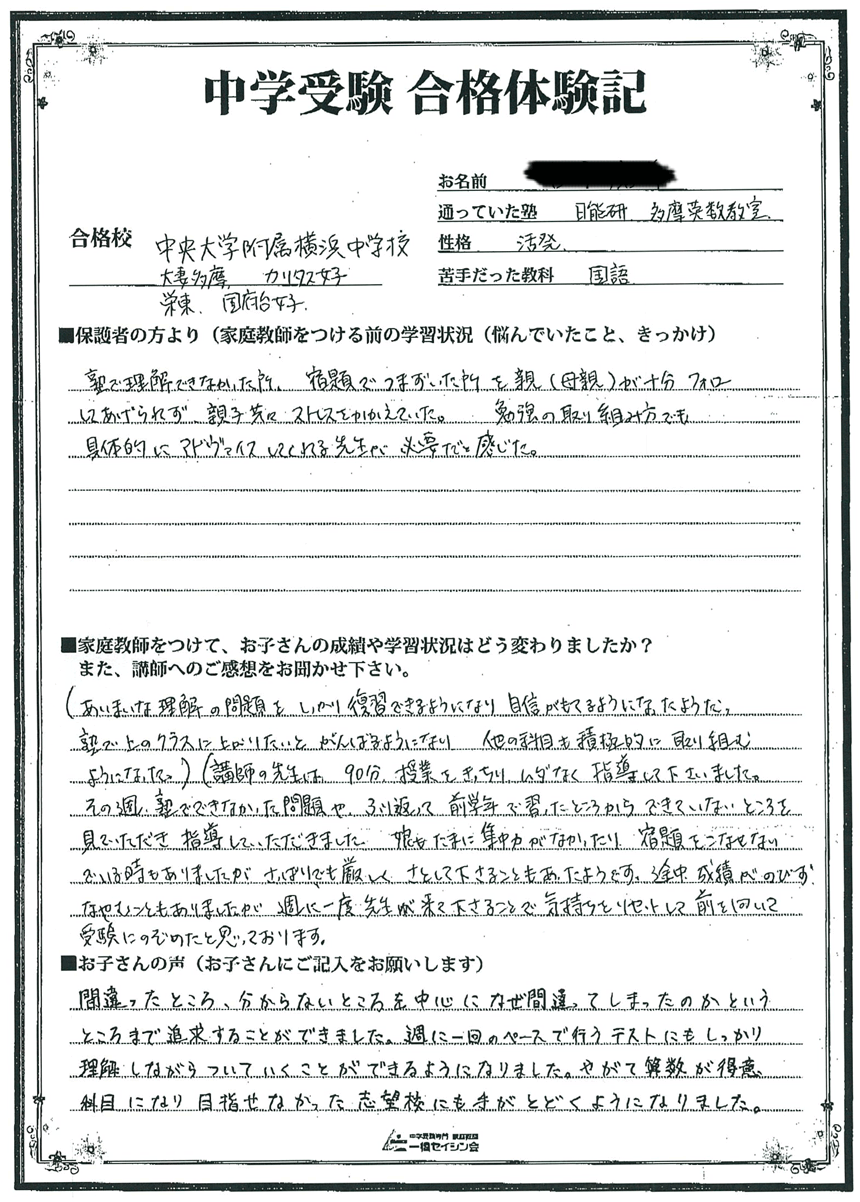 中学受験 合格体験記
お名前
通っていた塾 日能研 多摩英数教室
性格 活発
苦手だった教科 国語
合格校 中央大学附属横浜中学校
大妻多摩 カリタス女子
栄東、国府台女子
■保護者の方より（家庭教師をつける前の学習状況（悩んでいたこと、きっかけ）
塾で理解できなかった所、宿題でつまずいた所を親（母親）が十分フォロー
してあげられず、親子共々ストレスをかかえていた。 勉強の取り組み方でも
具体的にアドヴァイスしてくれる先生が必要だと感じた。
■家庭教師をつけて、お子さんの成績や学習状況はどう変わりましたか？
また、講師へのご感想をお聞かせ下さい。
（あいまいな理解の問題をしっかり復習できるようになり自信がもてるようになったようだ。
塾で上のクラスに上がりたいとがんばるようになり 他の科目も積極的に取り組む
ようになった。）（講師の先生は、90分、授業をきっちり、ムダなく指導して下さいました。
その週、塾でできなかった問題や、ふり返って前学年で習ったところからできていないところを
見ていただき指導していただきました。娘もたまに集中力がなかったり、宿題をこなせない
でいる時もありましたが さっぱりでも厳しく さとして下さることもあったようです。途中成績がのびず、
なやむこともありましたが 週に一度先生が来て下さることで気持ちをリセットして前を向いて
受験にのぞめたと思っております。
■お子さんの声（お子さんにご記入をお願いします）
間違ったところ、分からないところを中心になぜ間違ってしまったのかという
ところまで追求することができました。週に一回のペースで行うテストにもしっかり
理解しながらついていくことができるようになりました。やがて算数が得意
科目になり目指せなかった志望校にも手がとどくようになりました。
中学受験専門 家庭教師
一橋セイシン会